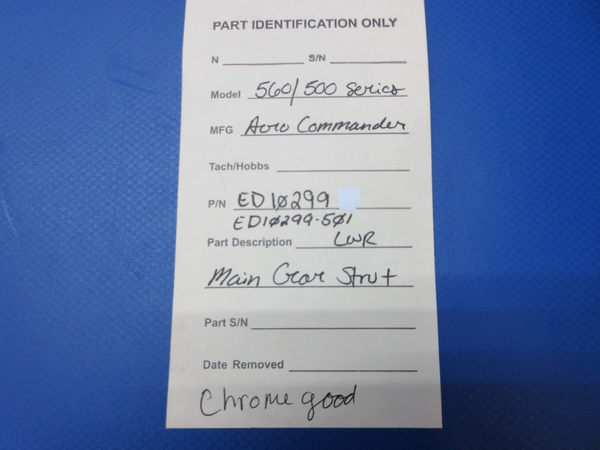 PART IDENTIFICATION ONLY
N S/N
Model 560/500 Series
MFG Aero Commander
Tach/Hobbs
P/N ED10299
ED10299-501
Part Description LWR
Main Gear Strut
Part S/N
Date Removed
Chrome good